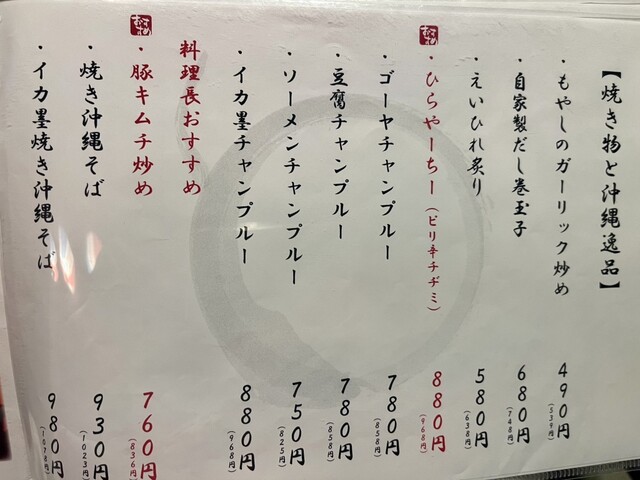 【焼き物と沖縄逸品】
・もやしのガーリック炒め 490円(539円)
・自家製だし巻玉子 680円(748円)
・えいひれ炙り 580円(638円)
おすすめ
・ひらやーちー(ピリ辛チヂミ) 880円(968円)
・ゴーヤチャンプルー 780円(858円)
・豆腐チャンプルー 780円(858円)
・ソーメンチャンプルー 750円(825円)
・イカ墨チャンプルー 880円(968円)
料理長おすすめ
おすすめ
・豚キムチ炒め 760円(836円)
・焼き沖縄そば 930円(1023円)
・イカ墨焼き沖縄そば 980円(1078円)